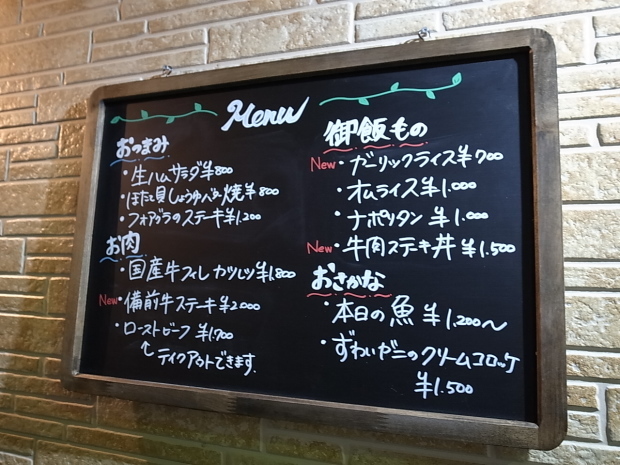 Menu
おつまみ
・生ハムサラダ¥800
・ほたて貝しょうゆバター焼¥800
・フォアグラのステーキ¥1,200
お肉
・国産牛フィレカツレツ¥1,800
New・備前牛ステーキ¥2,000
・ローストビーフ ¥1,700
テイクアウトできます.
御飯もの
New・ガーリックライス¥700
・オムライス ¥1,000
・ナポリタン ¥1,000
New・牛肉ステーキ丼 ¥1,500
おさかな
・本日の魚 ¥1,200〜
・ずわいガニのクリームコロッケ
¥1,500